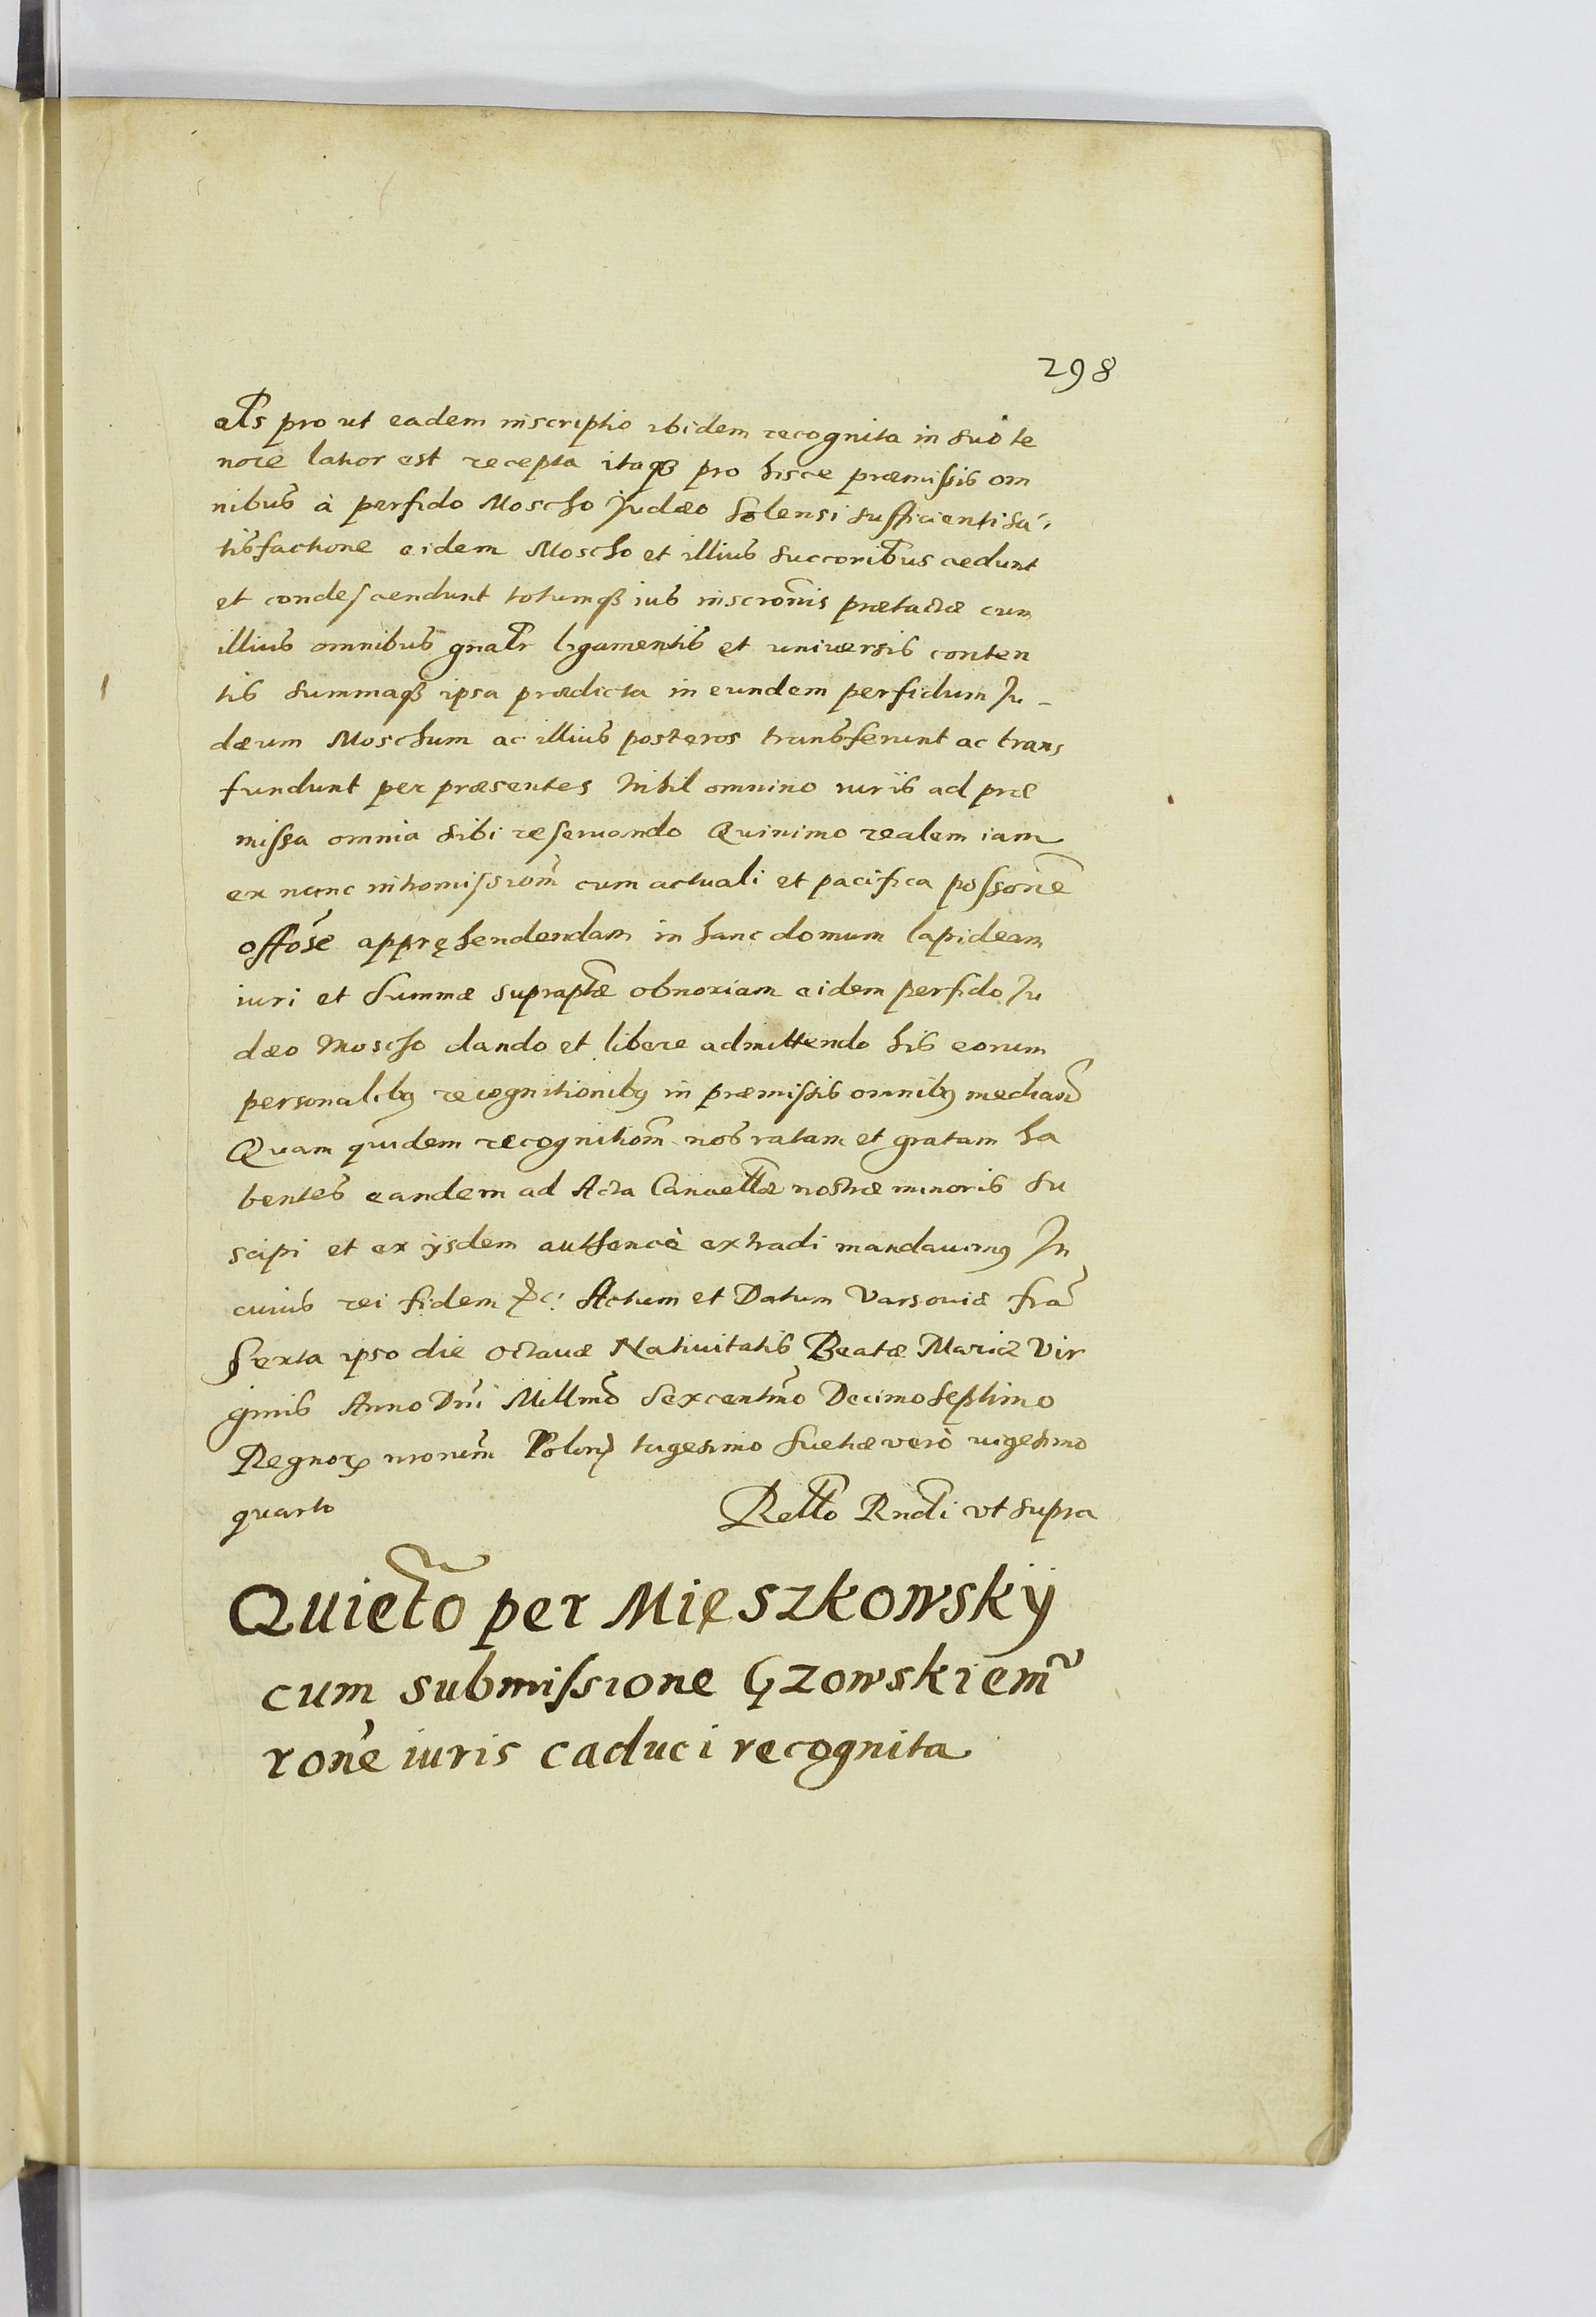 298
aľs pro ut eadem inscriptio ibidem recognita in suo te
nore latior est recepta itaqß pro hisce præmissis om
nibus à perfido Moscho Judæo Solensi sufficienti sa-
tisfactione eidem Moscho et illius succoribus cedunt
et condescendunt totumqß ius inscronis prætactæ cum
illius omnibus gnalr ligamentis et universis conten
tis summaqß ipsa prædicta in eundem perfidum Ju-
dæum Moschum ac illius posteros transferunt ac trans
fundunt per præsentes Nihil omnino iuris ad præ
missa omnia sibi reservando Quinimo realem iam
ex nunc intromissiom cum actuali et pacifica possone
offose appręhendendam in hanc domum lapideam
iuri et summæ supraptæ obnoxiam eidem perfido Ju
dæo Moscho dando et libere admittendo his eorum
personalibꝯ recognitionibꝯ in præmissis omnibꝯ mediañ
Quam quidem recognitiom nos ratam et gratam ha
bentes eandem ad Acta Cancellæ nostræ minoris su
scipi et ex ijsdem authencè extradi mandavimꝯ In
cuius rei fidem &c: Actum et Datum Varsoviæ fra
sexta ipso die octavæ Nativitatis Beatæ Mariæ Vir
ginis Anno Dni Millmo sexcentmo Decimo septimo
Regnoꝝ nrorum Polon trigesimo Suetiæ verò vigesimo
quarto
Rello Rndi ut supra
Quieto per Mięszkowskÿ
cum submissione Gzowskiemu
rone iuris caduci recognita